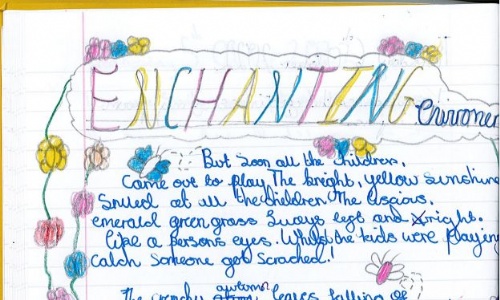 ENCHANTING Environmen
But Soon all the Children,
Came out to play. The bright, yellow sunshine
Smiled at all the children. The luscious,
emerald green grass Sways left and right.
like a persons eyes. Whilst the kids were playing
catch someone got Scratched!
The crunchy autumn leaves falling of